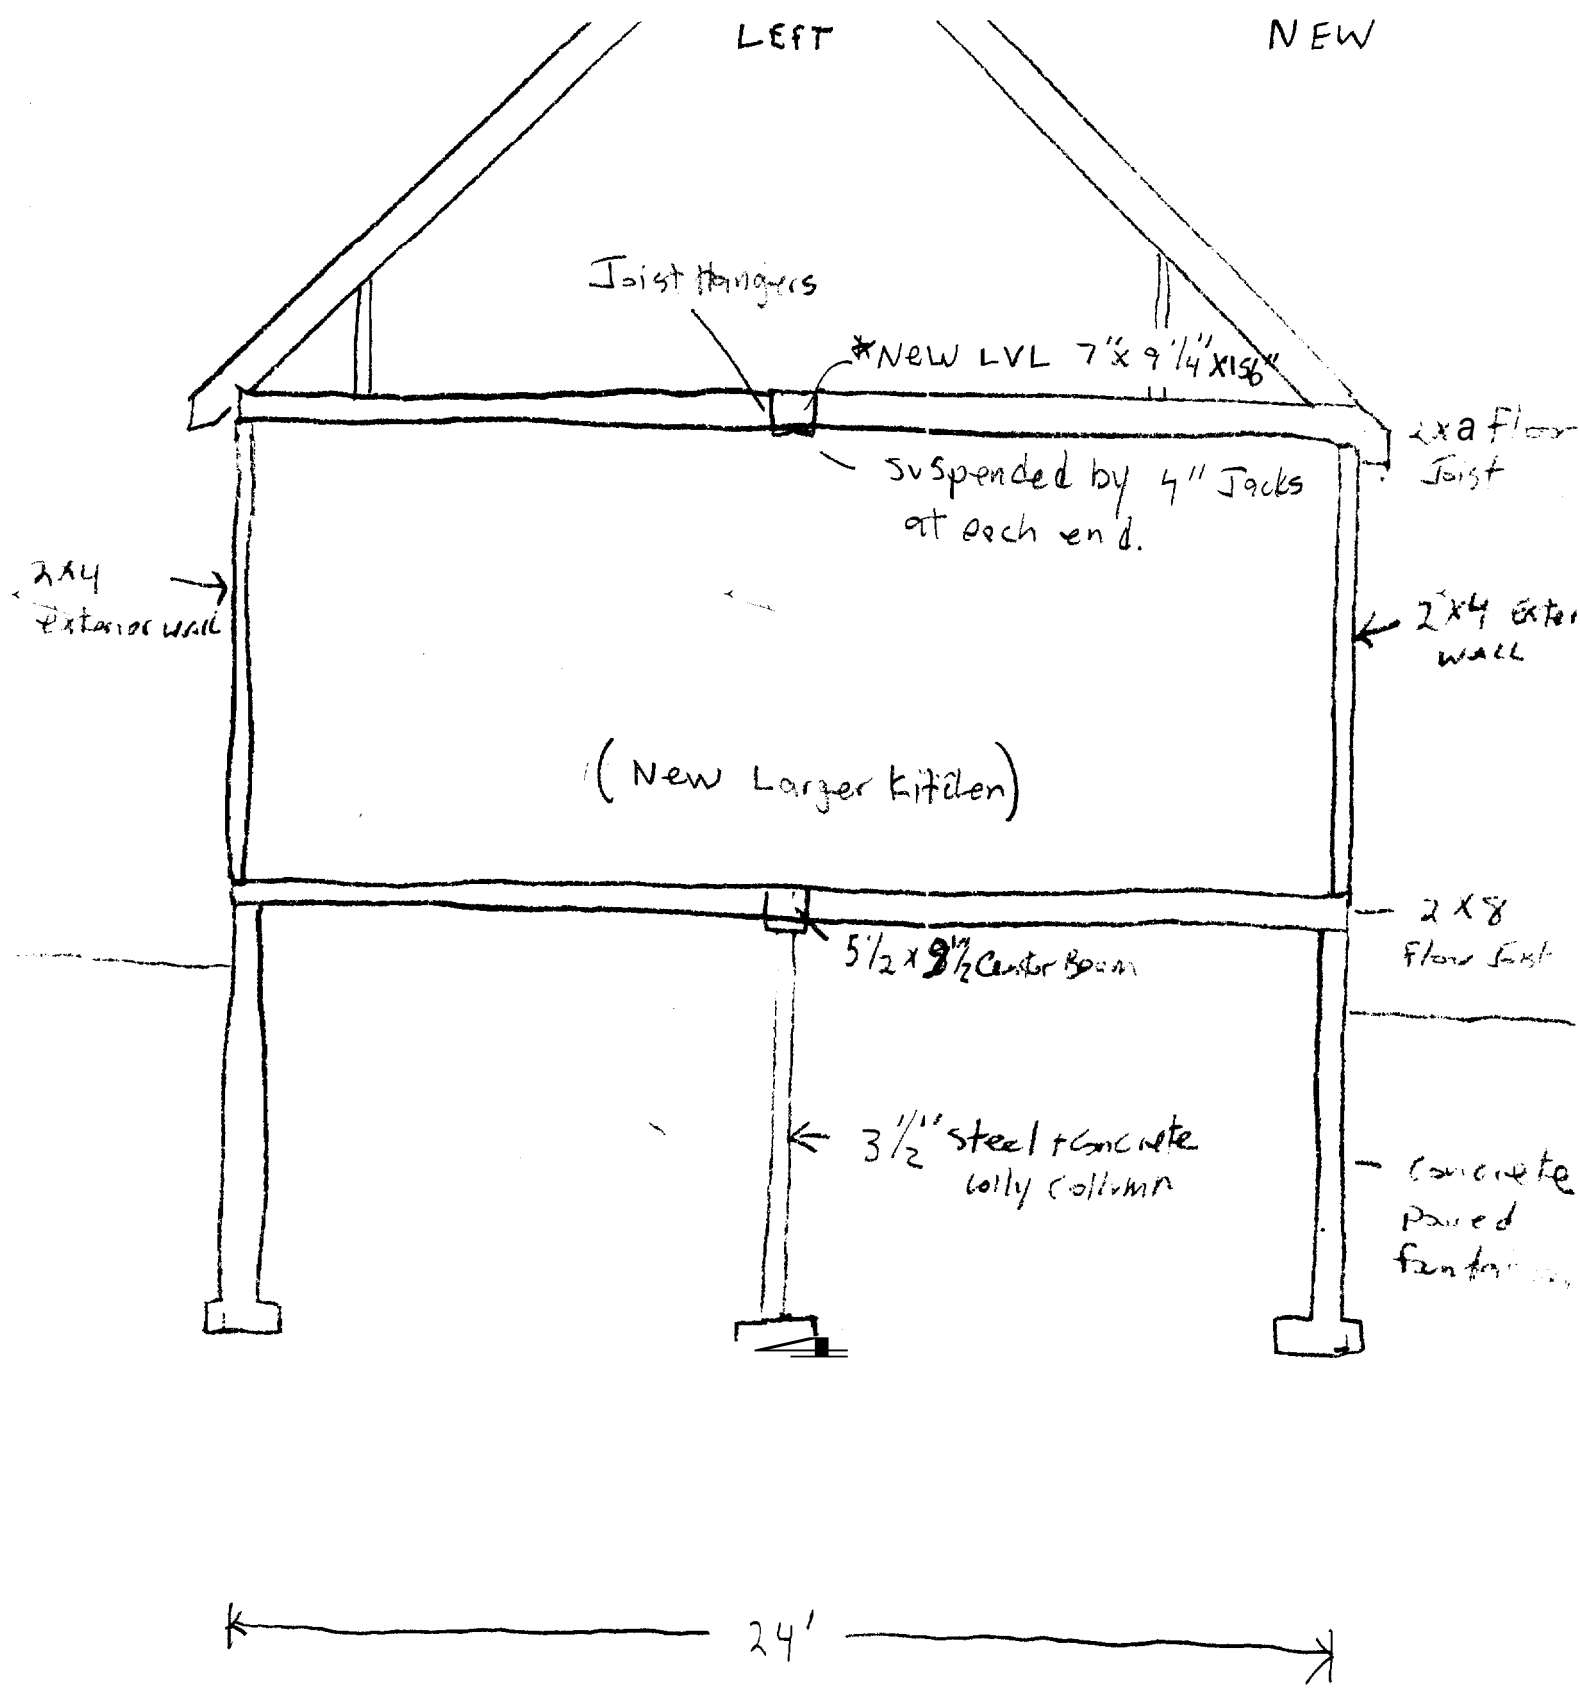 LEFT
NEW
Joist Hangers
*NEW LVL 7"x 9 1/4" x156"
2xa Floor
Joist
suspended by 4" Jacks
at each end.
2x4
exterior wall
2"x4 Exter
WALL
(New Larger Kitchen)
2 x 8
Floor Joist
5 1/2 x 9 1/2" Center Beam
3 1/2" Steel + Concrete
Lolly Collumn
Concrete
Poured
24'